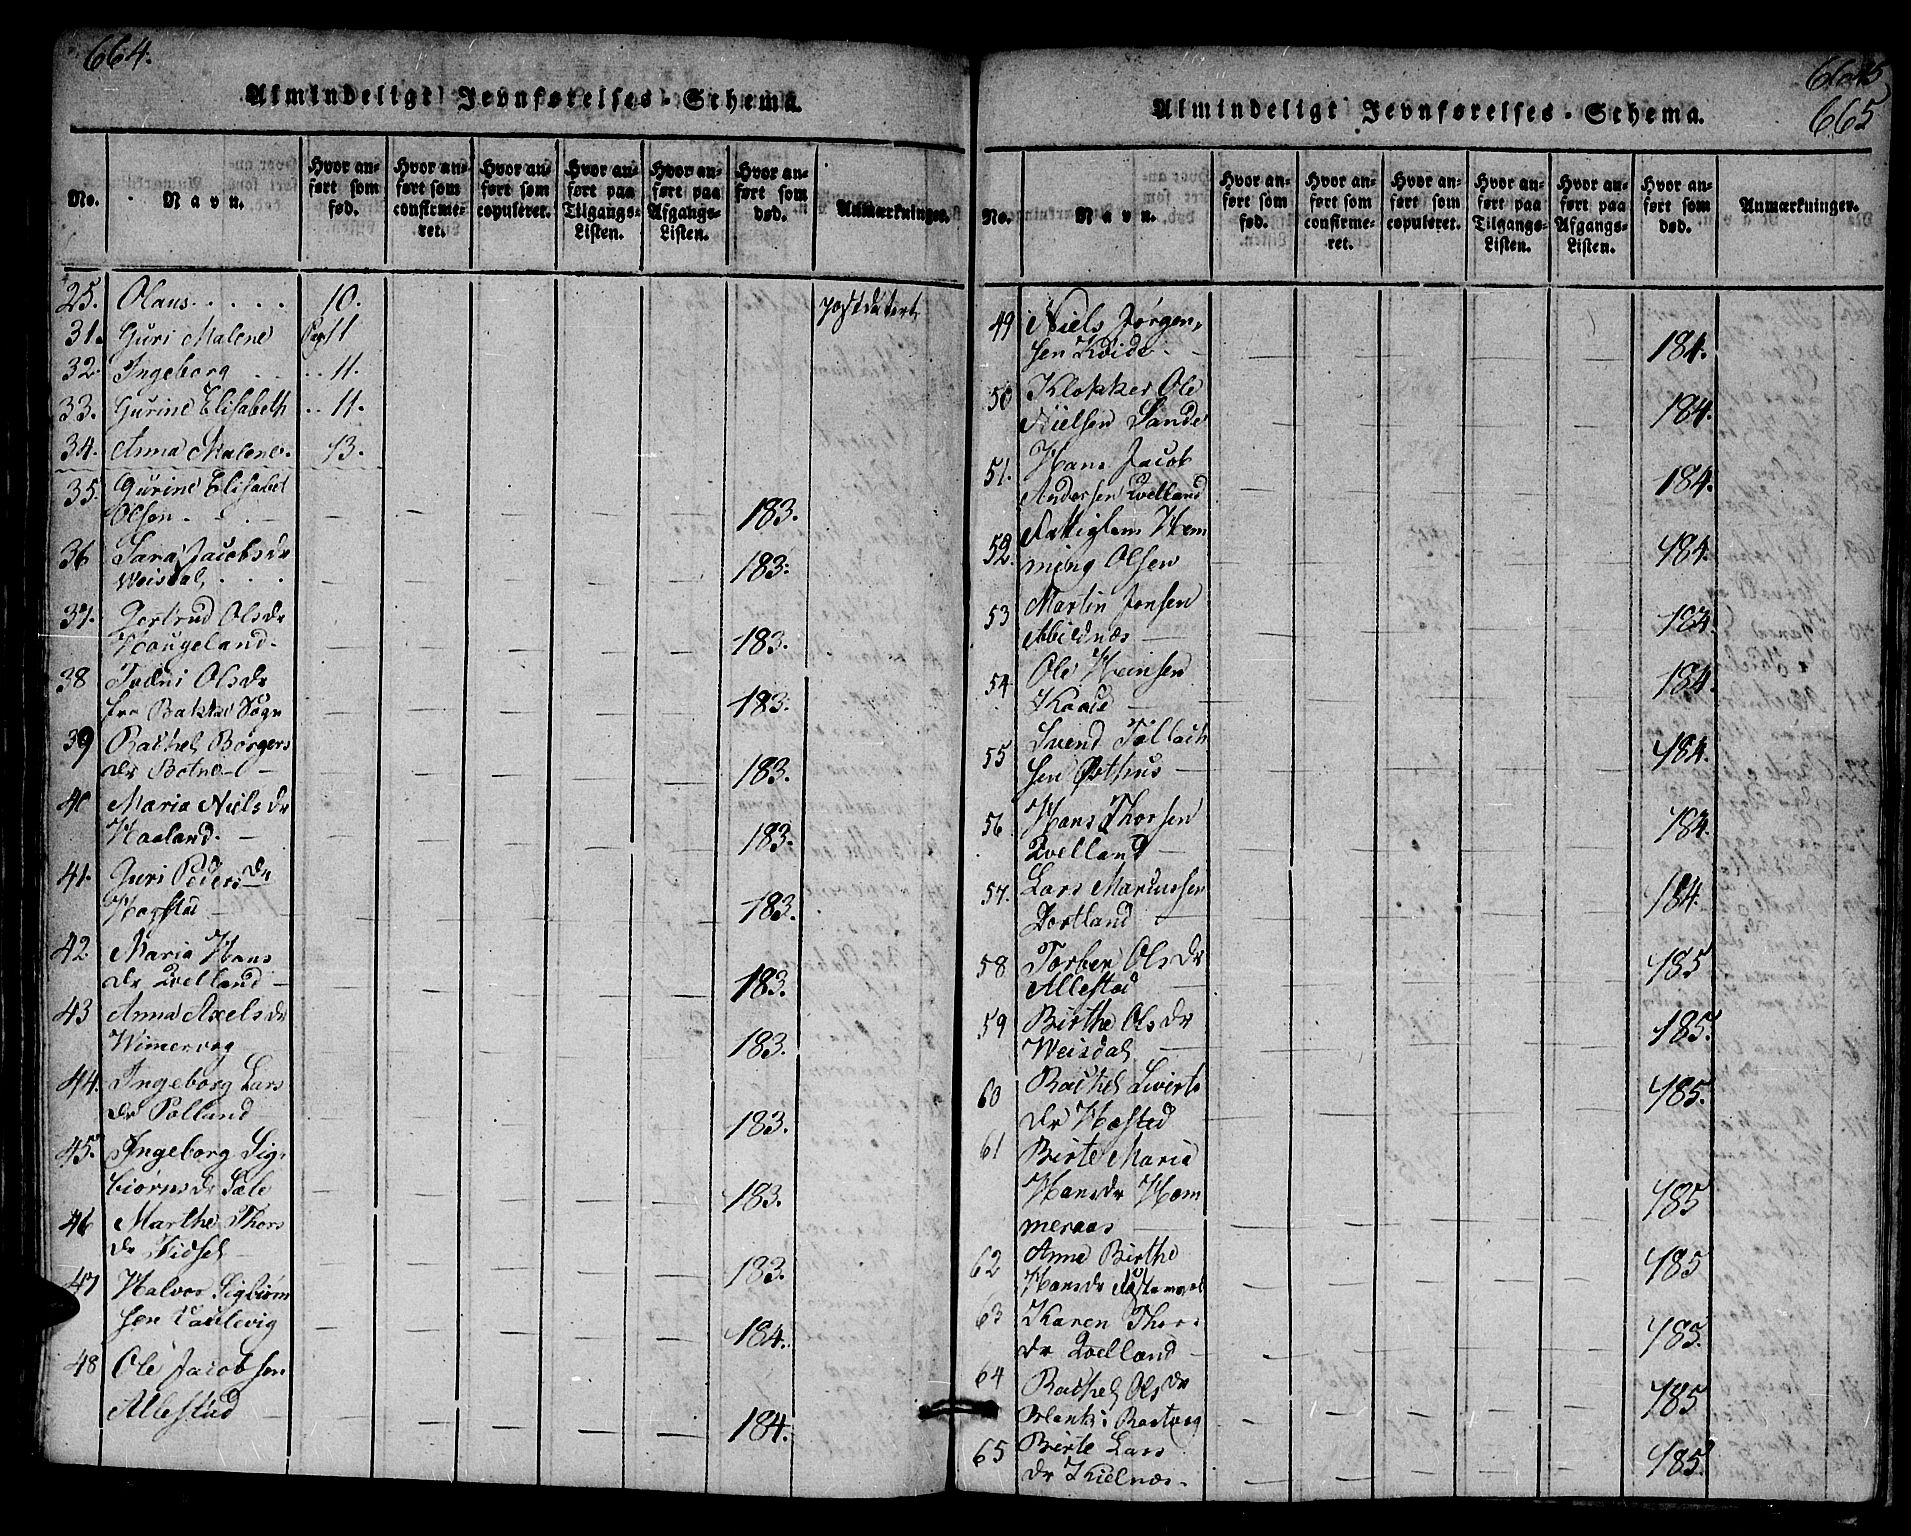 664.
Almindeligt Jevnførelses-Schema.
No.
Navn.
Hvor an-
ført som
fød.
Hvor an-
ført som
confirme-
ret.
Hvor an-
ført som
copuleret.
Hvor an-
ført paa
Tilgangs-
Listen.
Hvor an-
ført paa
Afgangs-
Listen.
Hvor an-
ført som
død.
Anmærkninger.
25. Olaus 10. postdatert
31. Guri Malene Pag 11
32. Ingeborg 11.
33. Gurine Elisabeth 11.
34. Anna Malene. 13.
35. Gurine Elisabet
Olsen 183.
36 Sara Jacobsdr
Weisdal 183.
37. Gertrud Olsdr
Haugeland. 183.
38 Olsdr
fra Bakke Sogn 183.
39 Rachel Børgers
dr Botne 183.
40 Maria Nielsdr
Haaland. 183.
41. Guri Peders dr
Hogstad 183.
42 Maria Hans
dr Qvelland 183.
43 Anna Axelsdr
183.
44. Ingeborg Lars
dr Polland 183.
45. Ingeborg Sig-
biørnsdr Sele 183.
46 Marthe Thors
dr Fidsel 183.
47 Halvor Sigbiørn
sen 184.
48 Ole Jacobsen
Allestad 184.
665
665
Almindeligt Jevnførelses-Schema.
No.
Navn.
Hvor an-
ført som
fød.
Hvor an-
ført som
confirme-
ret.
Hvor an-
ført som
copuleret.
Hvor an-
ført paa
Tilgangs-
Listen.
Hvor an-
ført paa
Afgangs-
Listen.
Hvor an-
ført som
død.
Anmærkninger.
49 Niels Jørgen-
sen 184.
50 Klokker Ole
Nielsen Sande 184.
51. Hans Jacob
Andersen Qvelland 184.
52. Fattiglem Hem
ming Olsen 184.
53 Martin Jensen
Abildnæs 184.
54 Ole Heinsen
184.
55 Svend Tollach
sen 184.
56. Hans Thorsen
Qvelland 184.
57. Lars Marcussen
184.
58 Torber Olsdr
Allestad 185
59 Birthe Olsdr
Weisdal 185.
60 Rachel Siverts
dr Hestad 185.
61 Birte Maria
Hansdr Hom
meraas 185
62 Anne Birthe
Hansdr 185
63 Karen Thors
dr Qvelland 185.
64 Rachel Olsdr
185
65 Birte Lars
dr Kielnæs. 185.